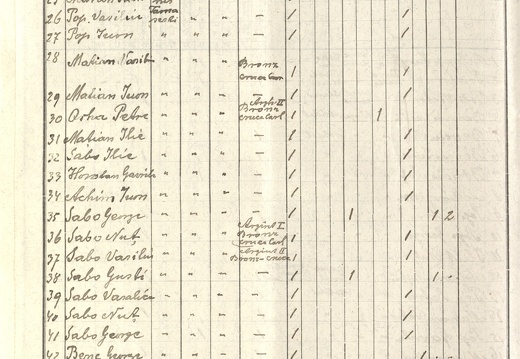 26 Pop Vasiliu " " " — /
27 Pop Iuon " " " — / /
28 Matian Vasiliu " " " Bronz cruce Carl / /
29 Matian Iuon " " " — / /
30 Orha Petre " " " Argint II Bronz cruce Carl / 1
31 Matian Ilie " " " — / /
32 Sabo Ilie " " " — / /
33 " " " — / /
34 Achim Iuon " " " — / /
35 Sabo George " " " — / 1 1 2
36 Sabo Nuț " " " Argint I Bronz cruce Carl / /
37 Sabo Vasiliu " " " Argint II Bronz cruce / /
38 Sabo Gusti " " " — / 1 1
39 Sabo " " " — / /
40 Sabo Nuț " " " — / /
41 Sabo George " " " — / /
42 Bene George